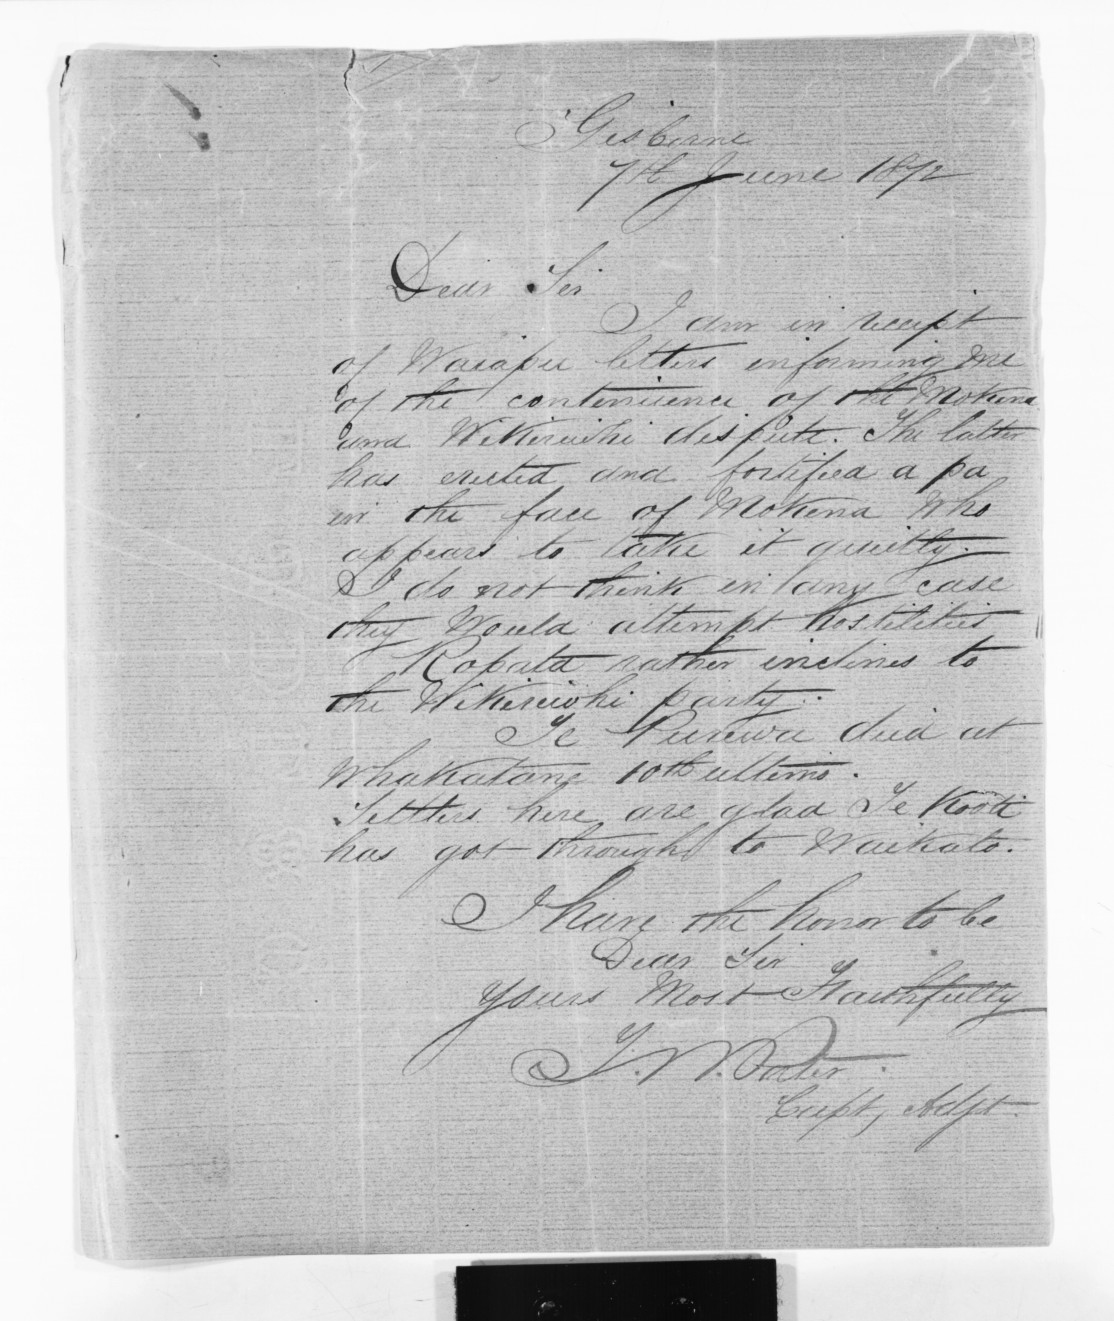 Gisborne
7th June 1872
Dear Sir
I am in receipt
of Waiapu letters informing me
of the continuence of the Mokena
and Wikiriwhi dispute. The latter
has erected and fortified a pa
in the face of Mokena Who
appears to take it quietly.
I do not think in any case
they Would attempt hostilities
Ropata rather inclines to
the Wikiriwhi party.
Te Purewa died at
Whakatane 10th ultimo.
Settlers here are glad Te Kooti
has got through to Waikato.
I have the honor to be
Dear Sir
Yours Most Faithfully
T. W. Porter
Capt, Adjt